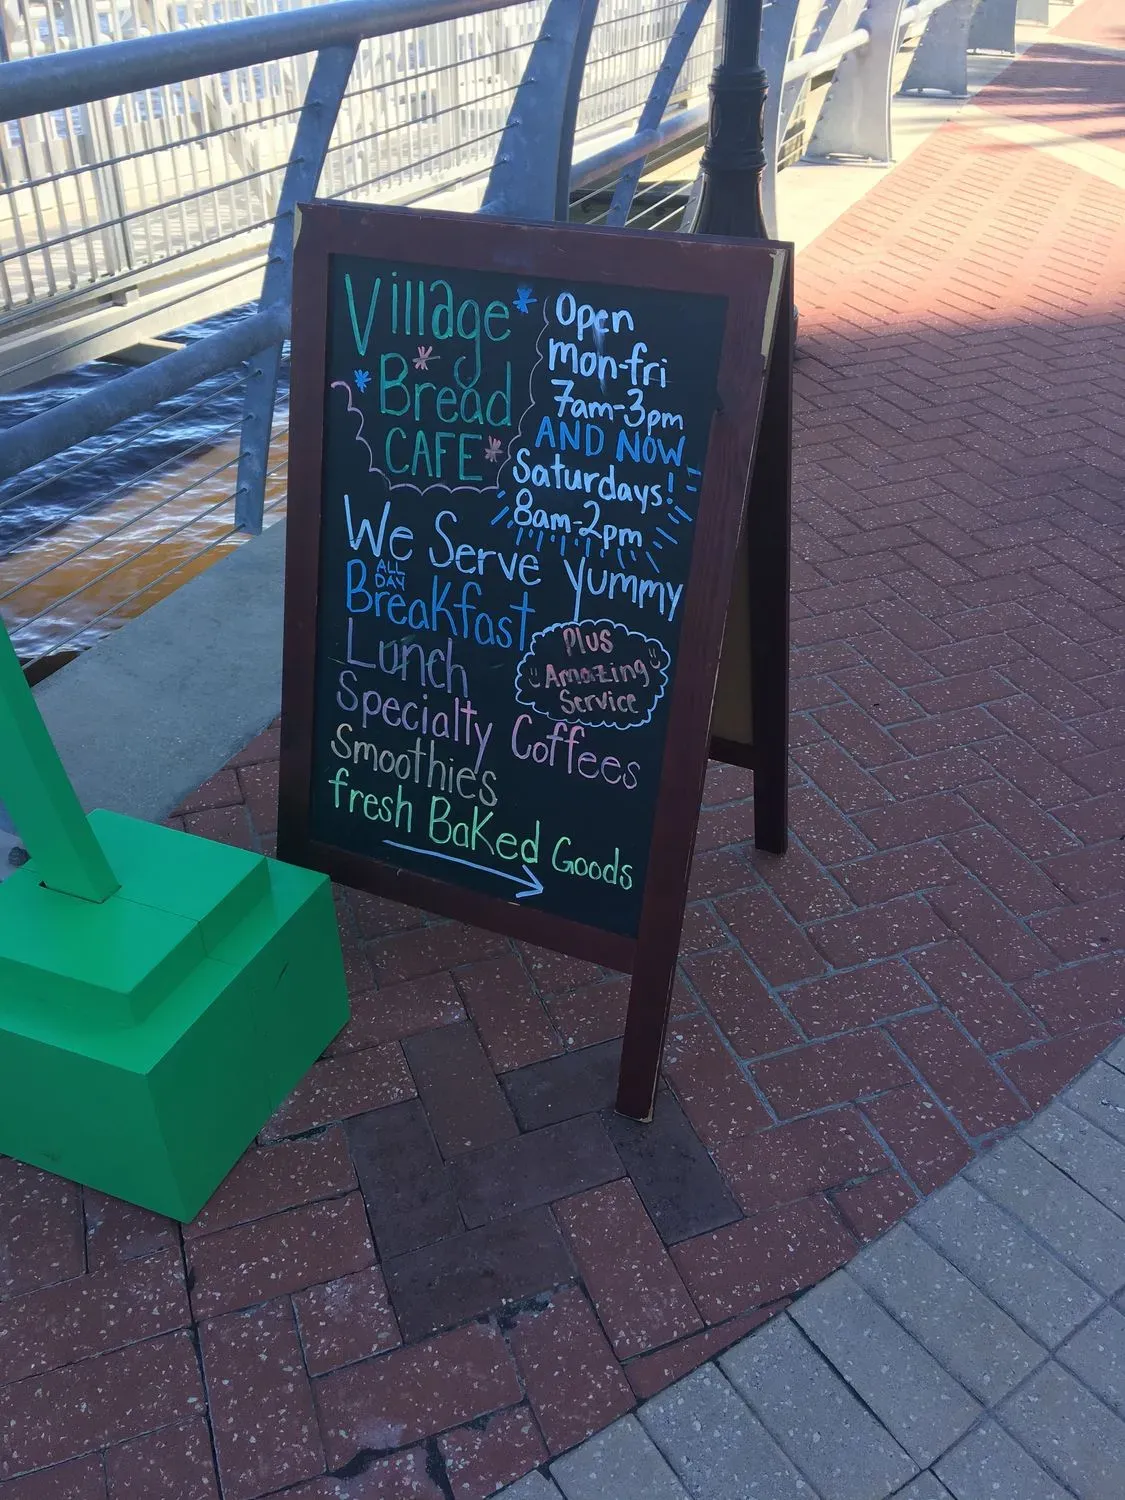 Village
Bread
CAFE
Open
mon-fri
7am-3pm
AND NOW
Saturdays!
8am-2pm
We Serve Yummy
ALL
DAY
Breakfast
Lunch
Specialty Coffees
Smoothies
fresh Baked Goods
Plus
Amazing
Service